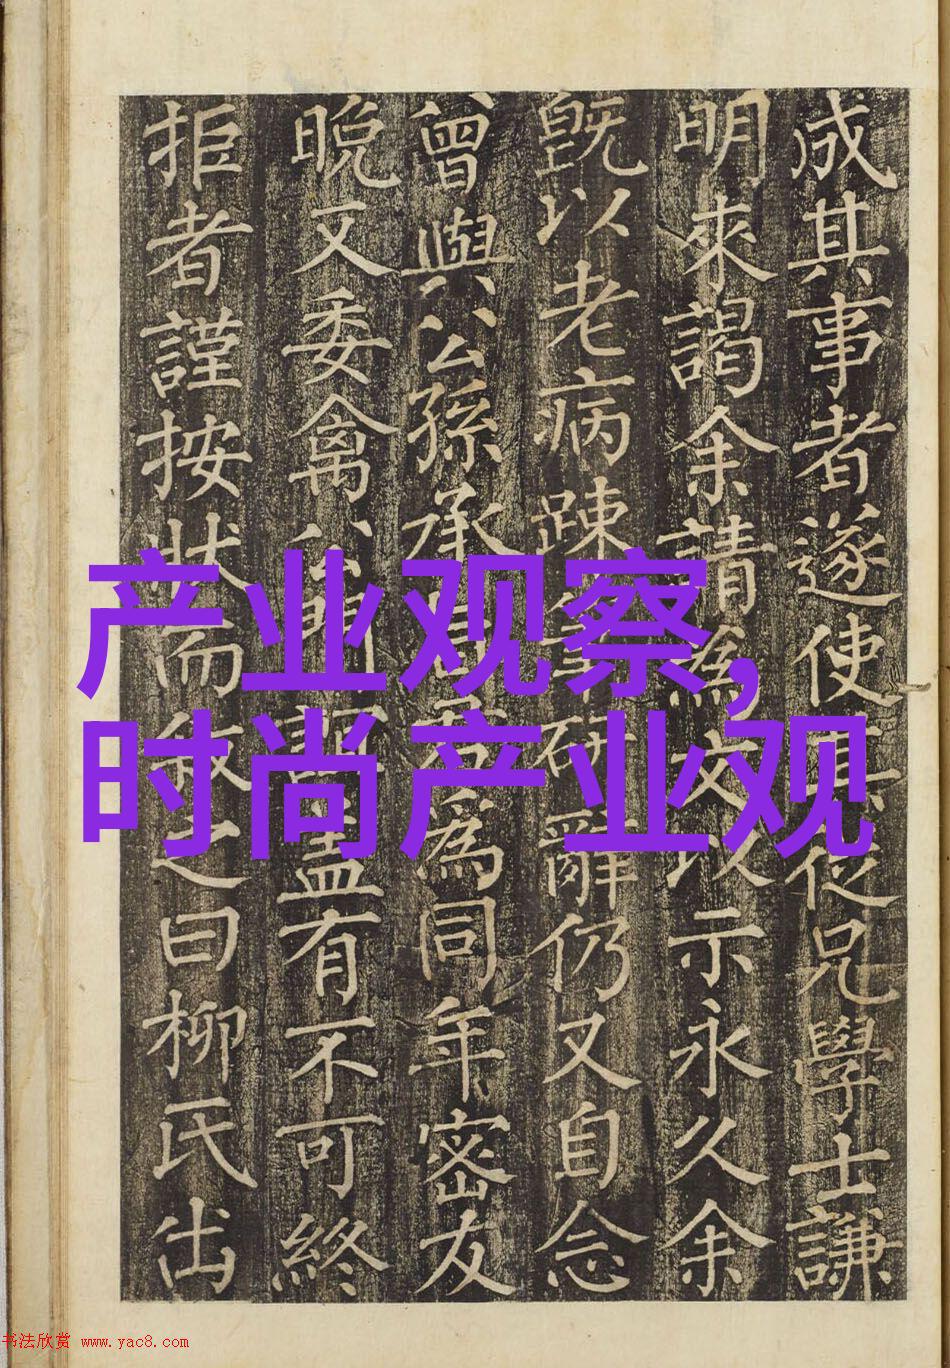 成其事者遂使其從兄學士謙
明來謁余請為文以示永久余
旣以老病踈研辭仍又自念
曾與公孫承為同年密友
晚又委禽公門盖有不可終
拒者謹按狀而敘之曰柳氏出
产业观察,
时尚产业观
书法欣赏 www.yac8.com